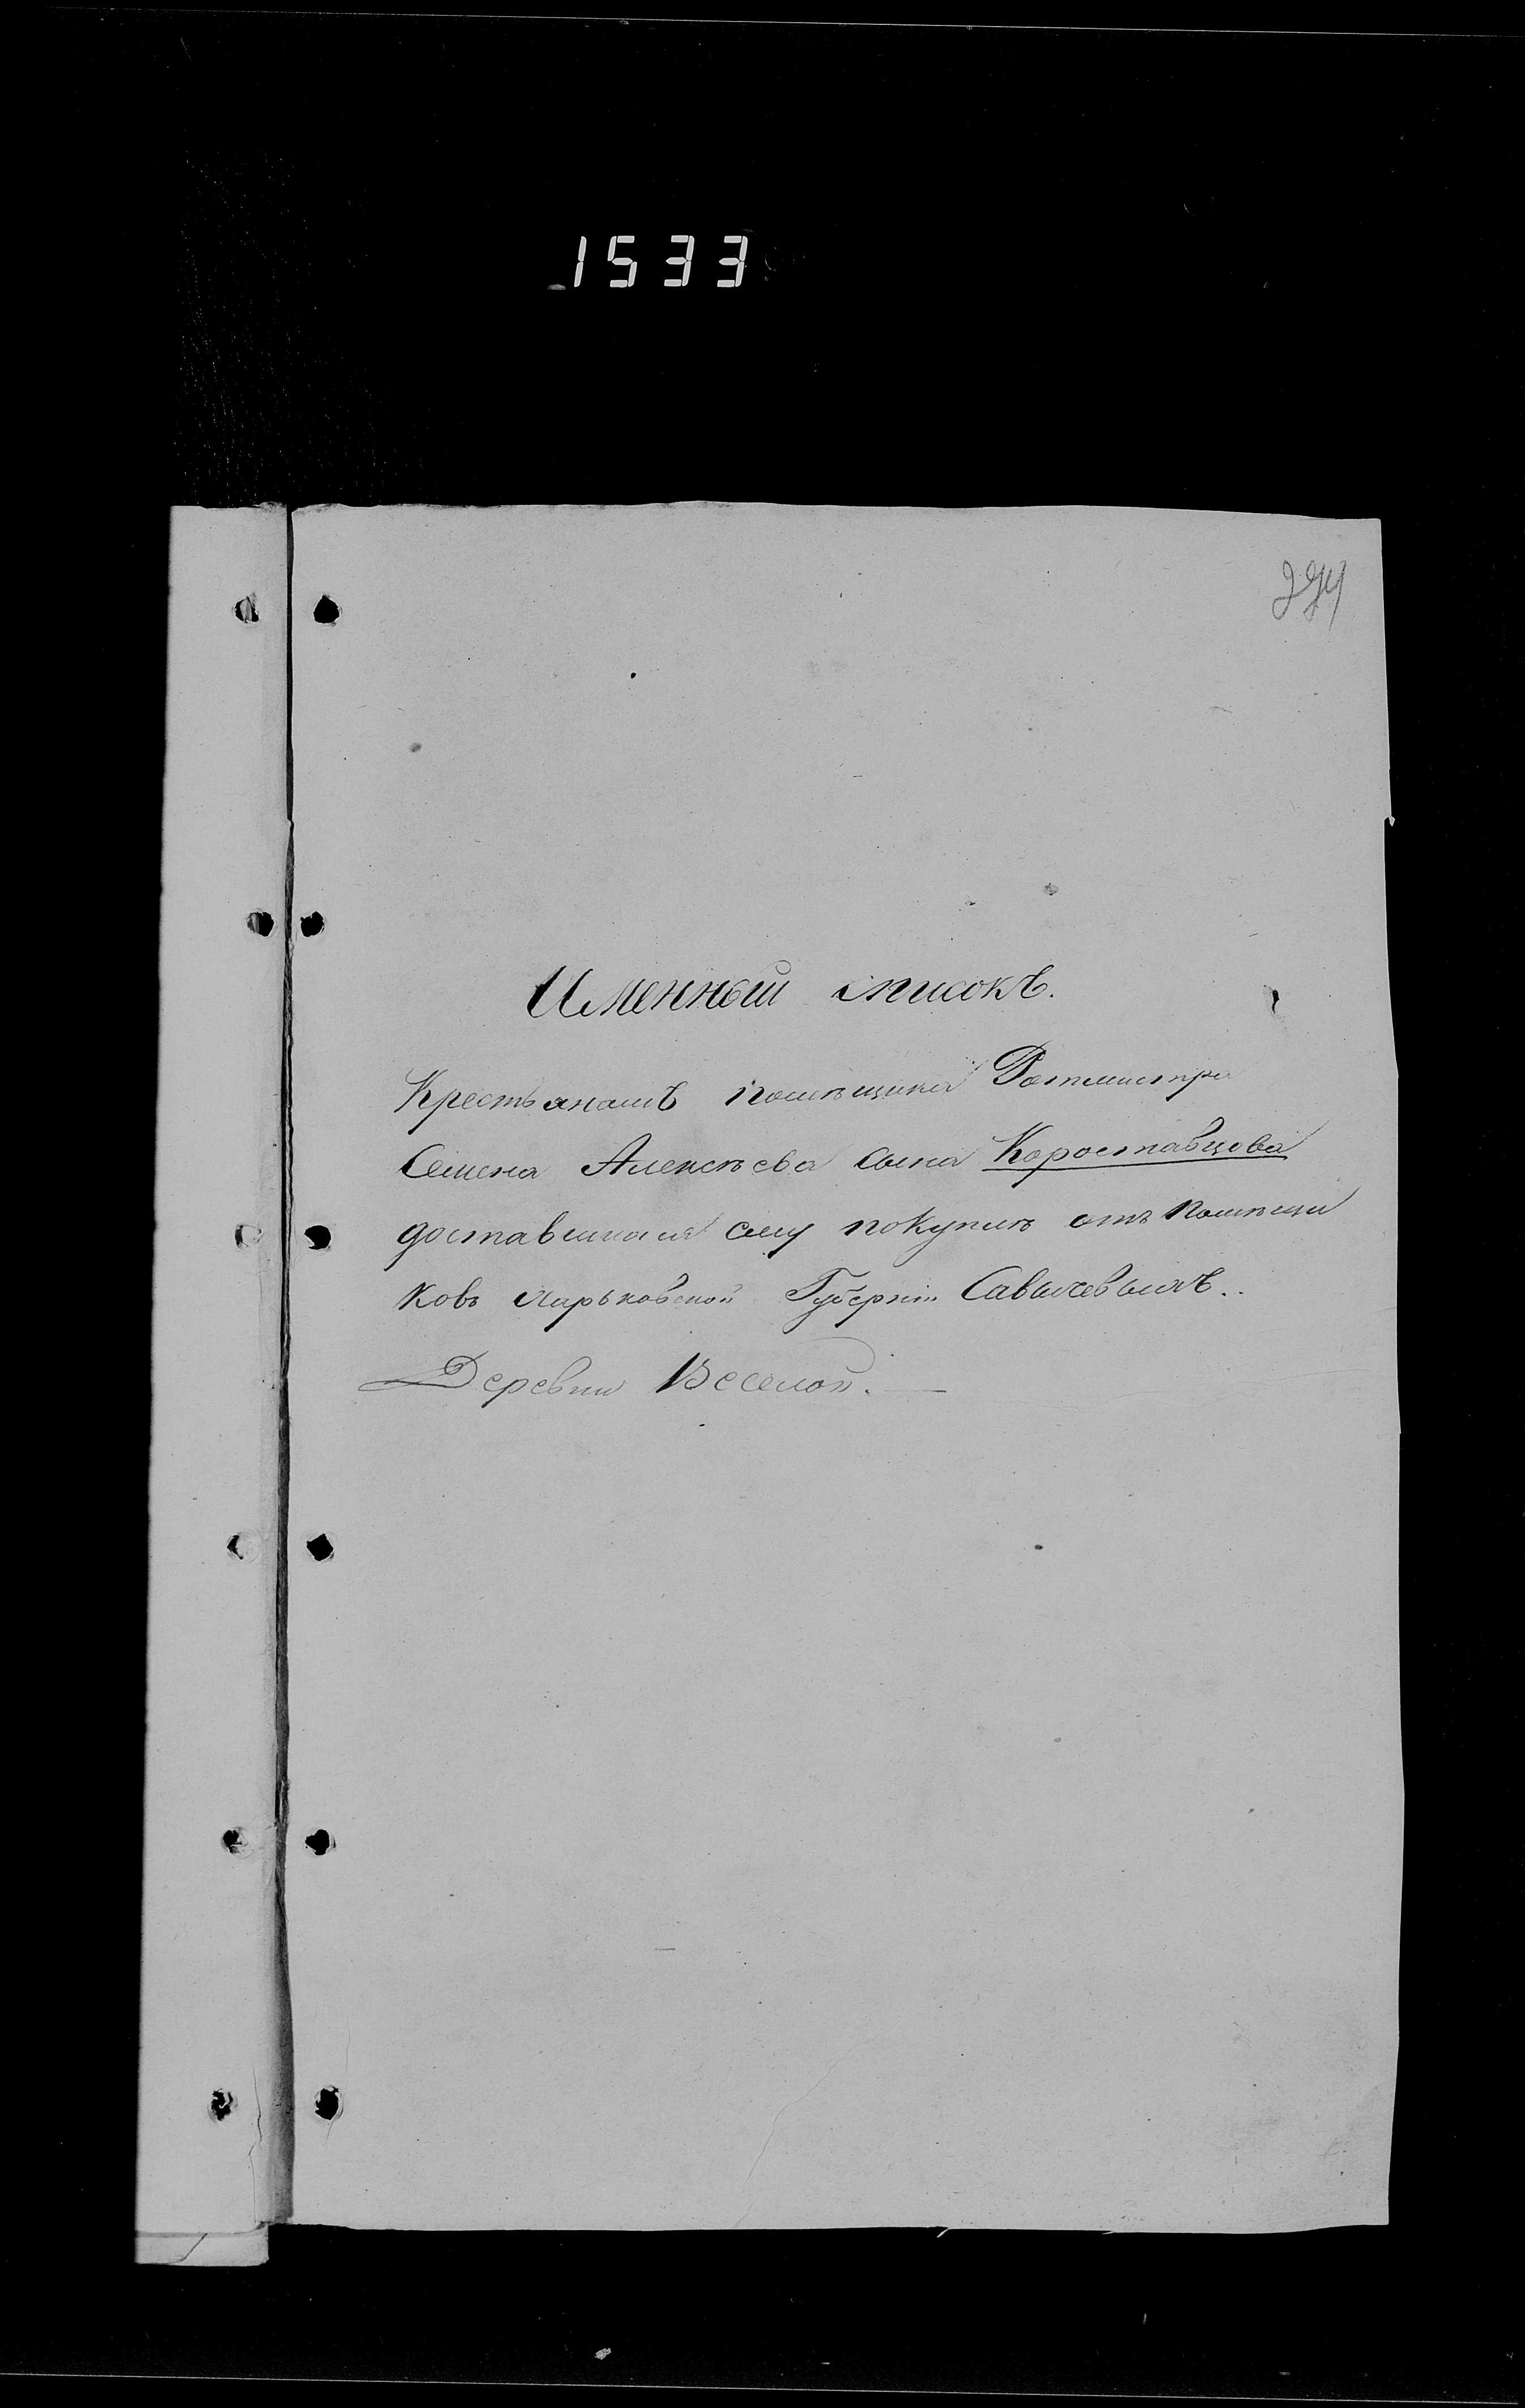 1533
294
Именный списокъ.
Крестьянамъ помѣщика Ротмистра
Семена Алексѣева сына Короставцова
доставшимся ему покупкѣ отъ помѣщи
ковъ Харьковской Губерніи Савичевыхъ..
Деревни Веселой.—